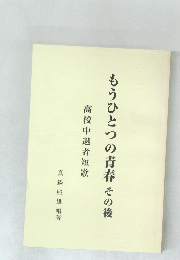 もうひとつの青春 その後
高校中退者短歌